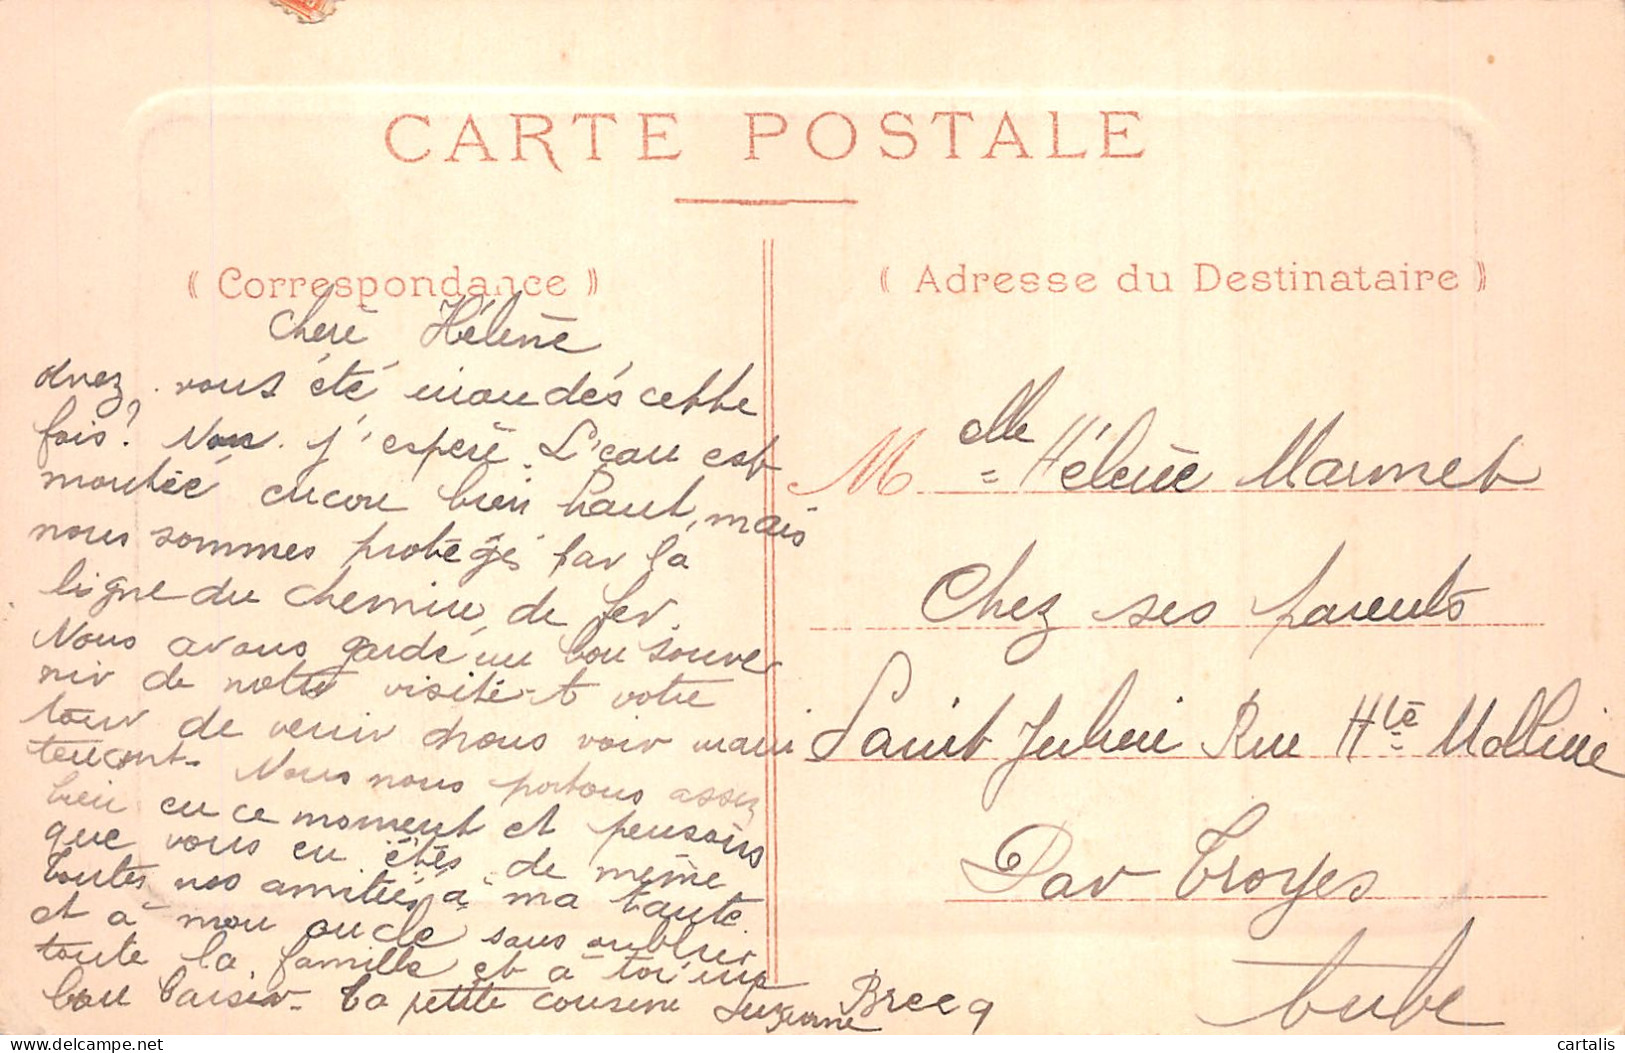 CARTE POSTALE
« Correspondance »
« Adresse du Destinataire »
Chere Hélène
Avez vous été inondés cette
fois? Non j'espère. L'eau est
montée encor bien haut, mais
nous sommes protégés par la
ligne du chemin de fer.
Nous avons gardé un bon souve
nir de notre visite et votre
tour de venir nous voir main
tenant. Nous nous portons assez
bien en ce moment et pensons
que vous en êtes de même
Toutes nos amitiés à ma tante
et à mon oncle sans oublier
toute la famille et à toi un
bon baiser. Ta petite cousine Suzanne Brecq
Melle Hélène Marmet
Chez ses parents
Saint Julien Rue Hte Molline
Par Troyes
Aube
cartalis